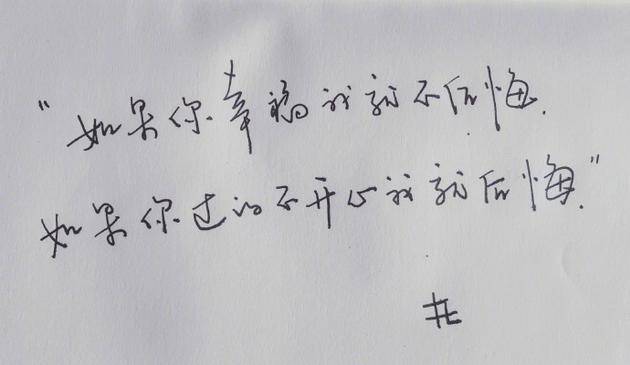 "如果你幸福我就不后悔.
如果你过的不开心我就后悔."